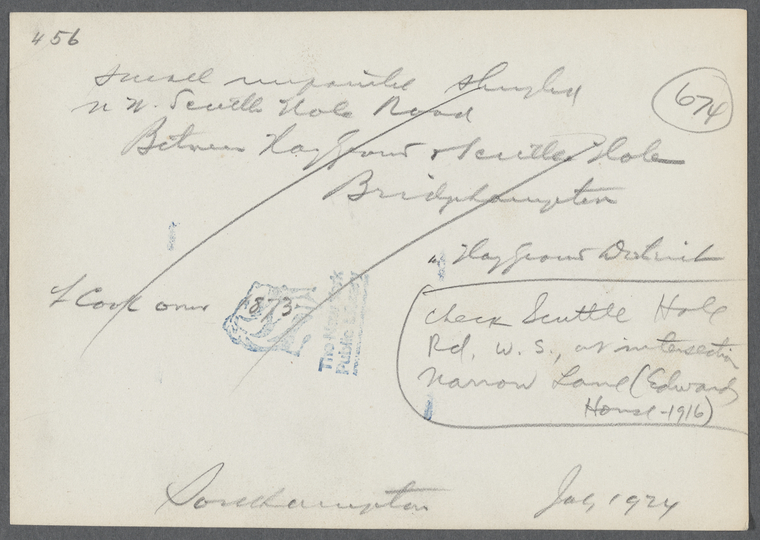 456
674
small unpainted shingled
n W. Scuttle Hole Road
Between Hayground & Scuttle Hole
Bridgehampton
" Hayground District
L Cook own
1873
The New York
Public Library
Check Scuttle Hole
Rd. W. S., at intersection
Narrow Lane (Edwards
House-1916)
Southampton July 1924